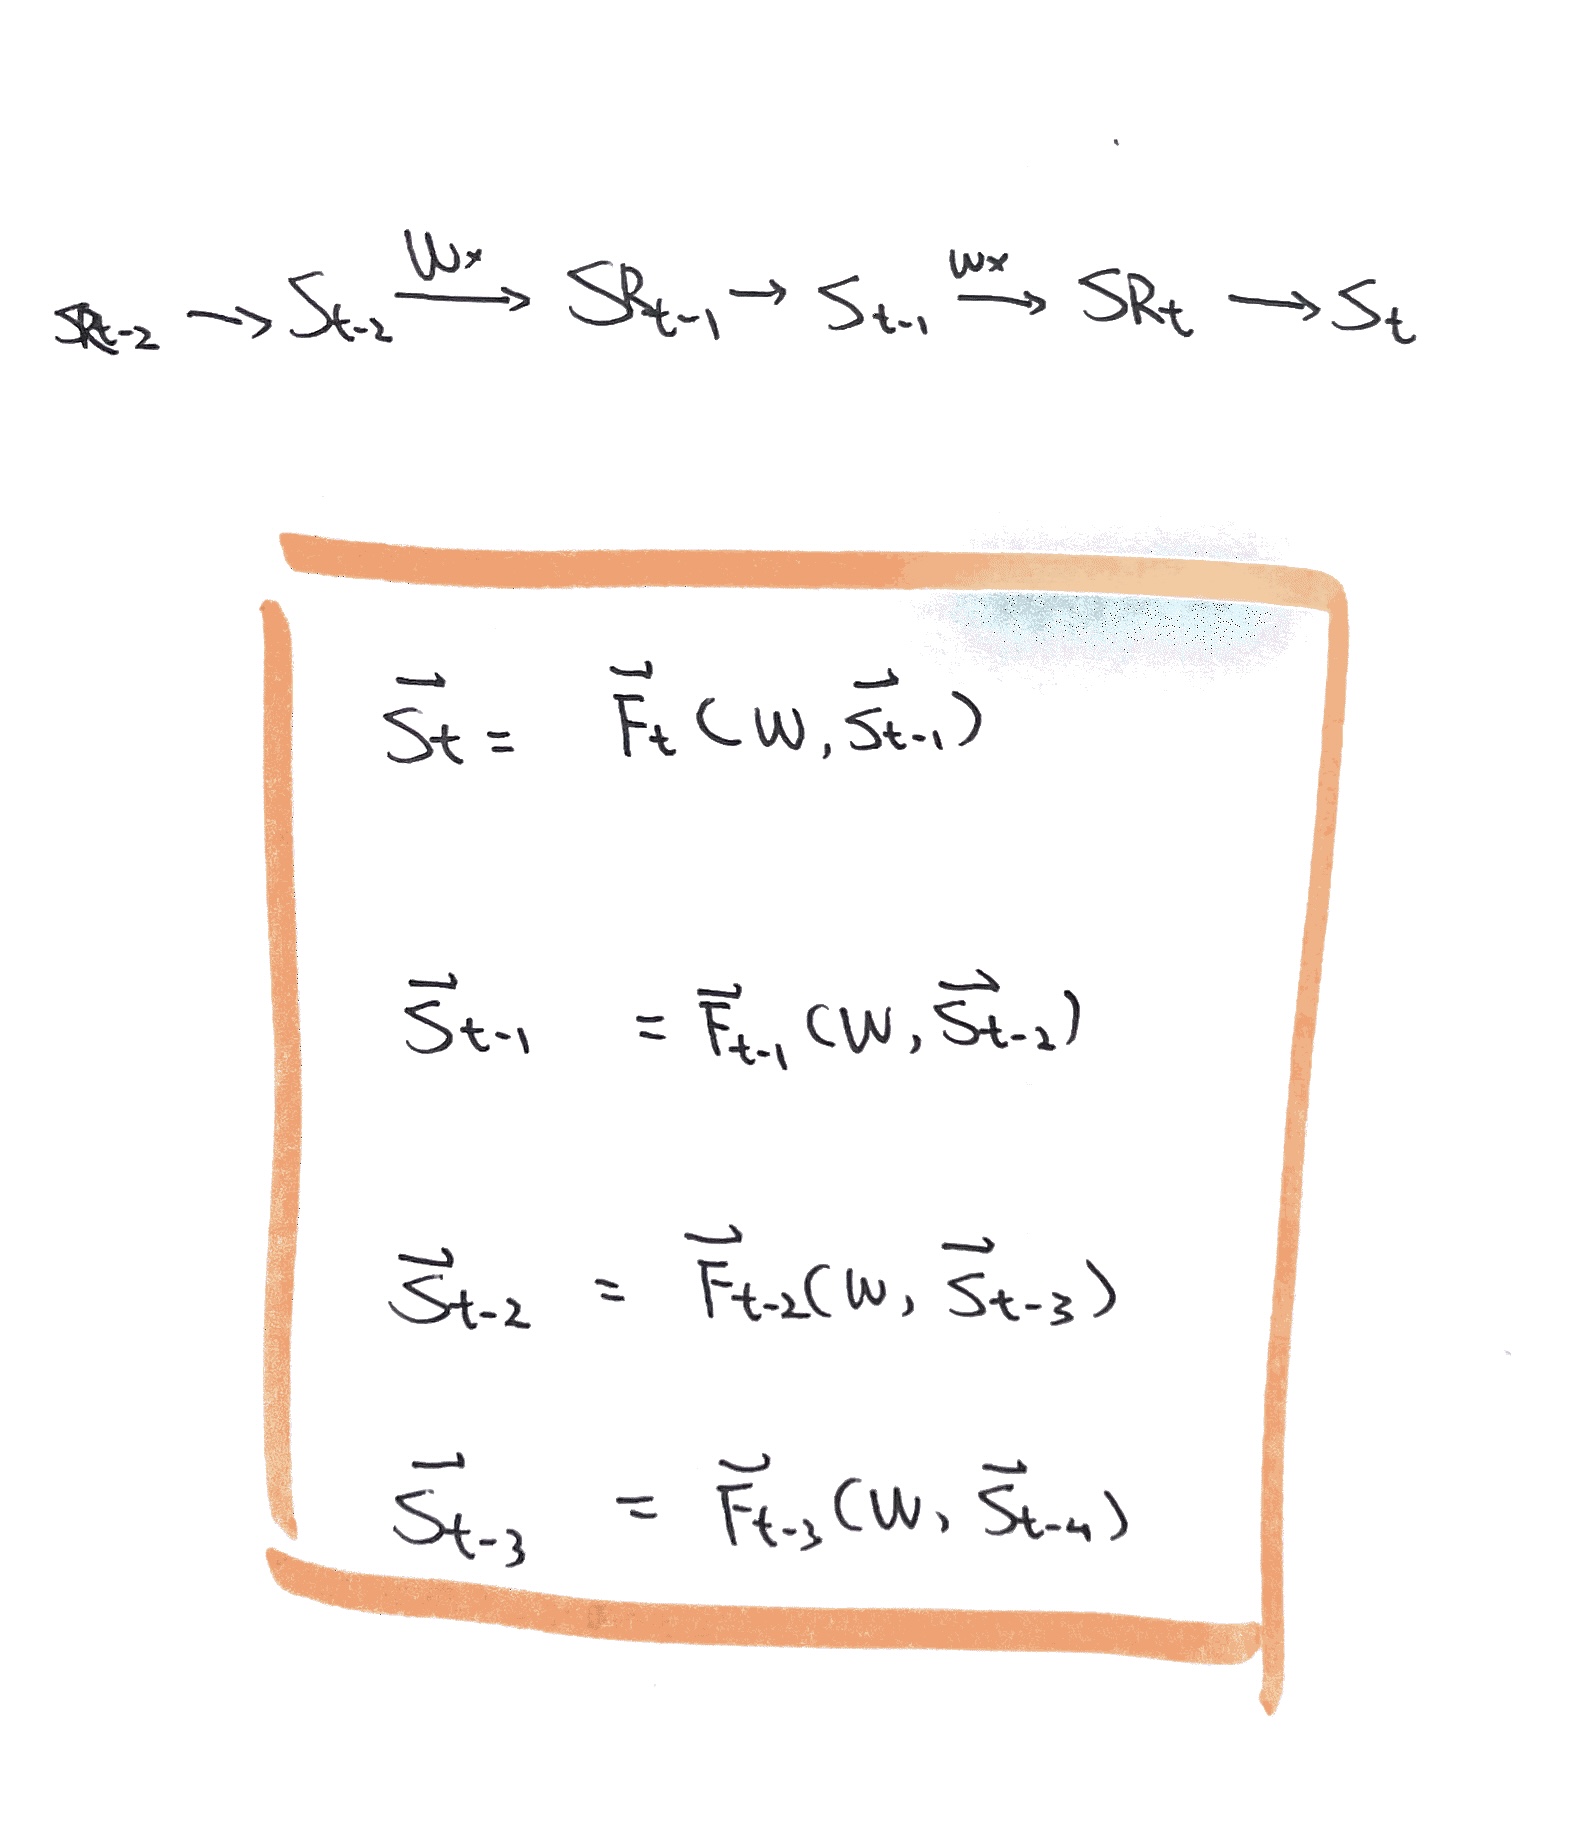 SRt-2 → St-2 —Wx→ SRt-1 → St-1 —Wx→ SRt → St
S⃗t = F⃗t (W, S⃗t-1)
S⃗t-1 = F⃗t-1 (W, S⃗t-2)
S⃗t-2 = F⃗t-2 (W, S⃗t-3)
S⃗t-3 = F⃗t-3 (W, S⃗t-4)